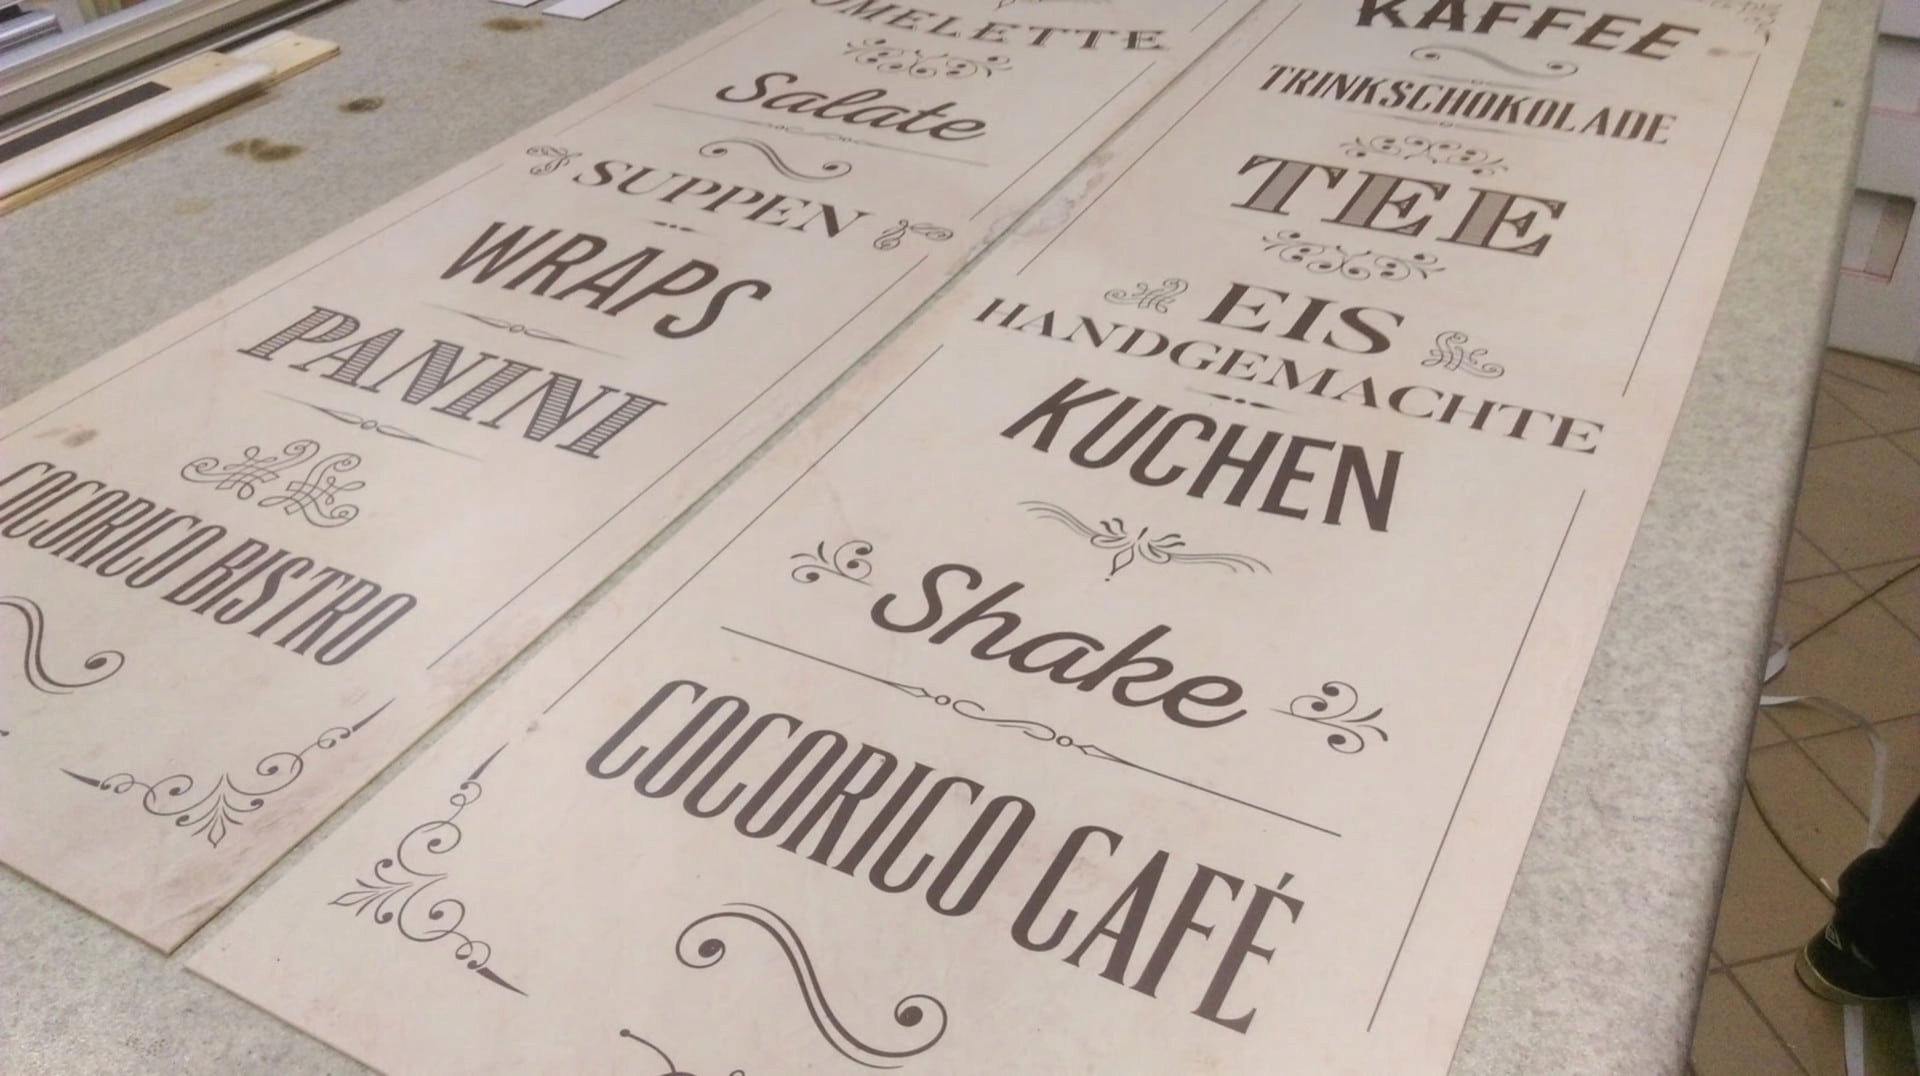 OMELETTE
Salate
SUPPEN
WRAPS
PANINI
COCORICO BISTRO
KAFFEE
TRINKSCHOKOLADE
TEE
EIS
HANDGEMACHTE
KUCHEN
Shake
COCORICO CAFÉ